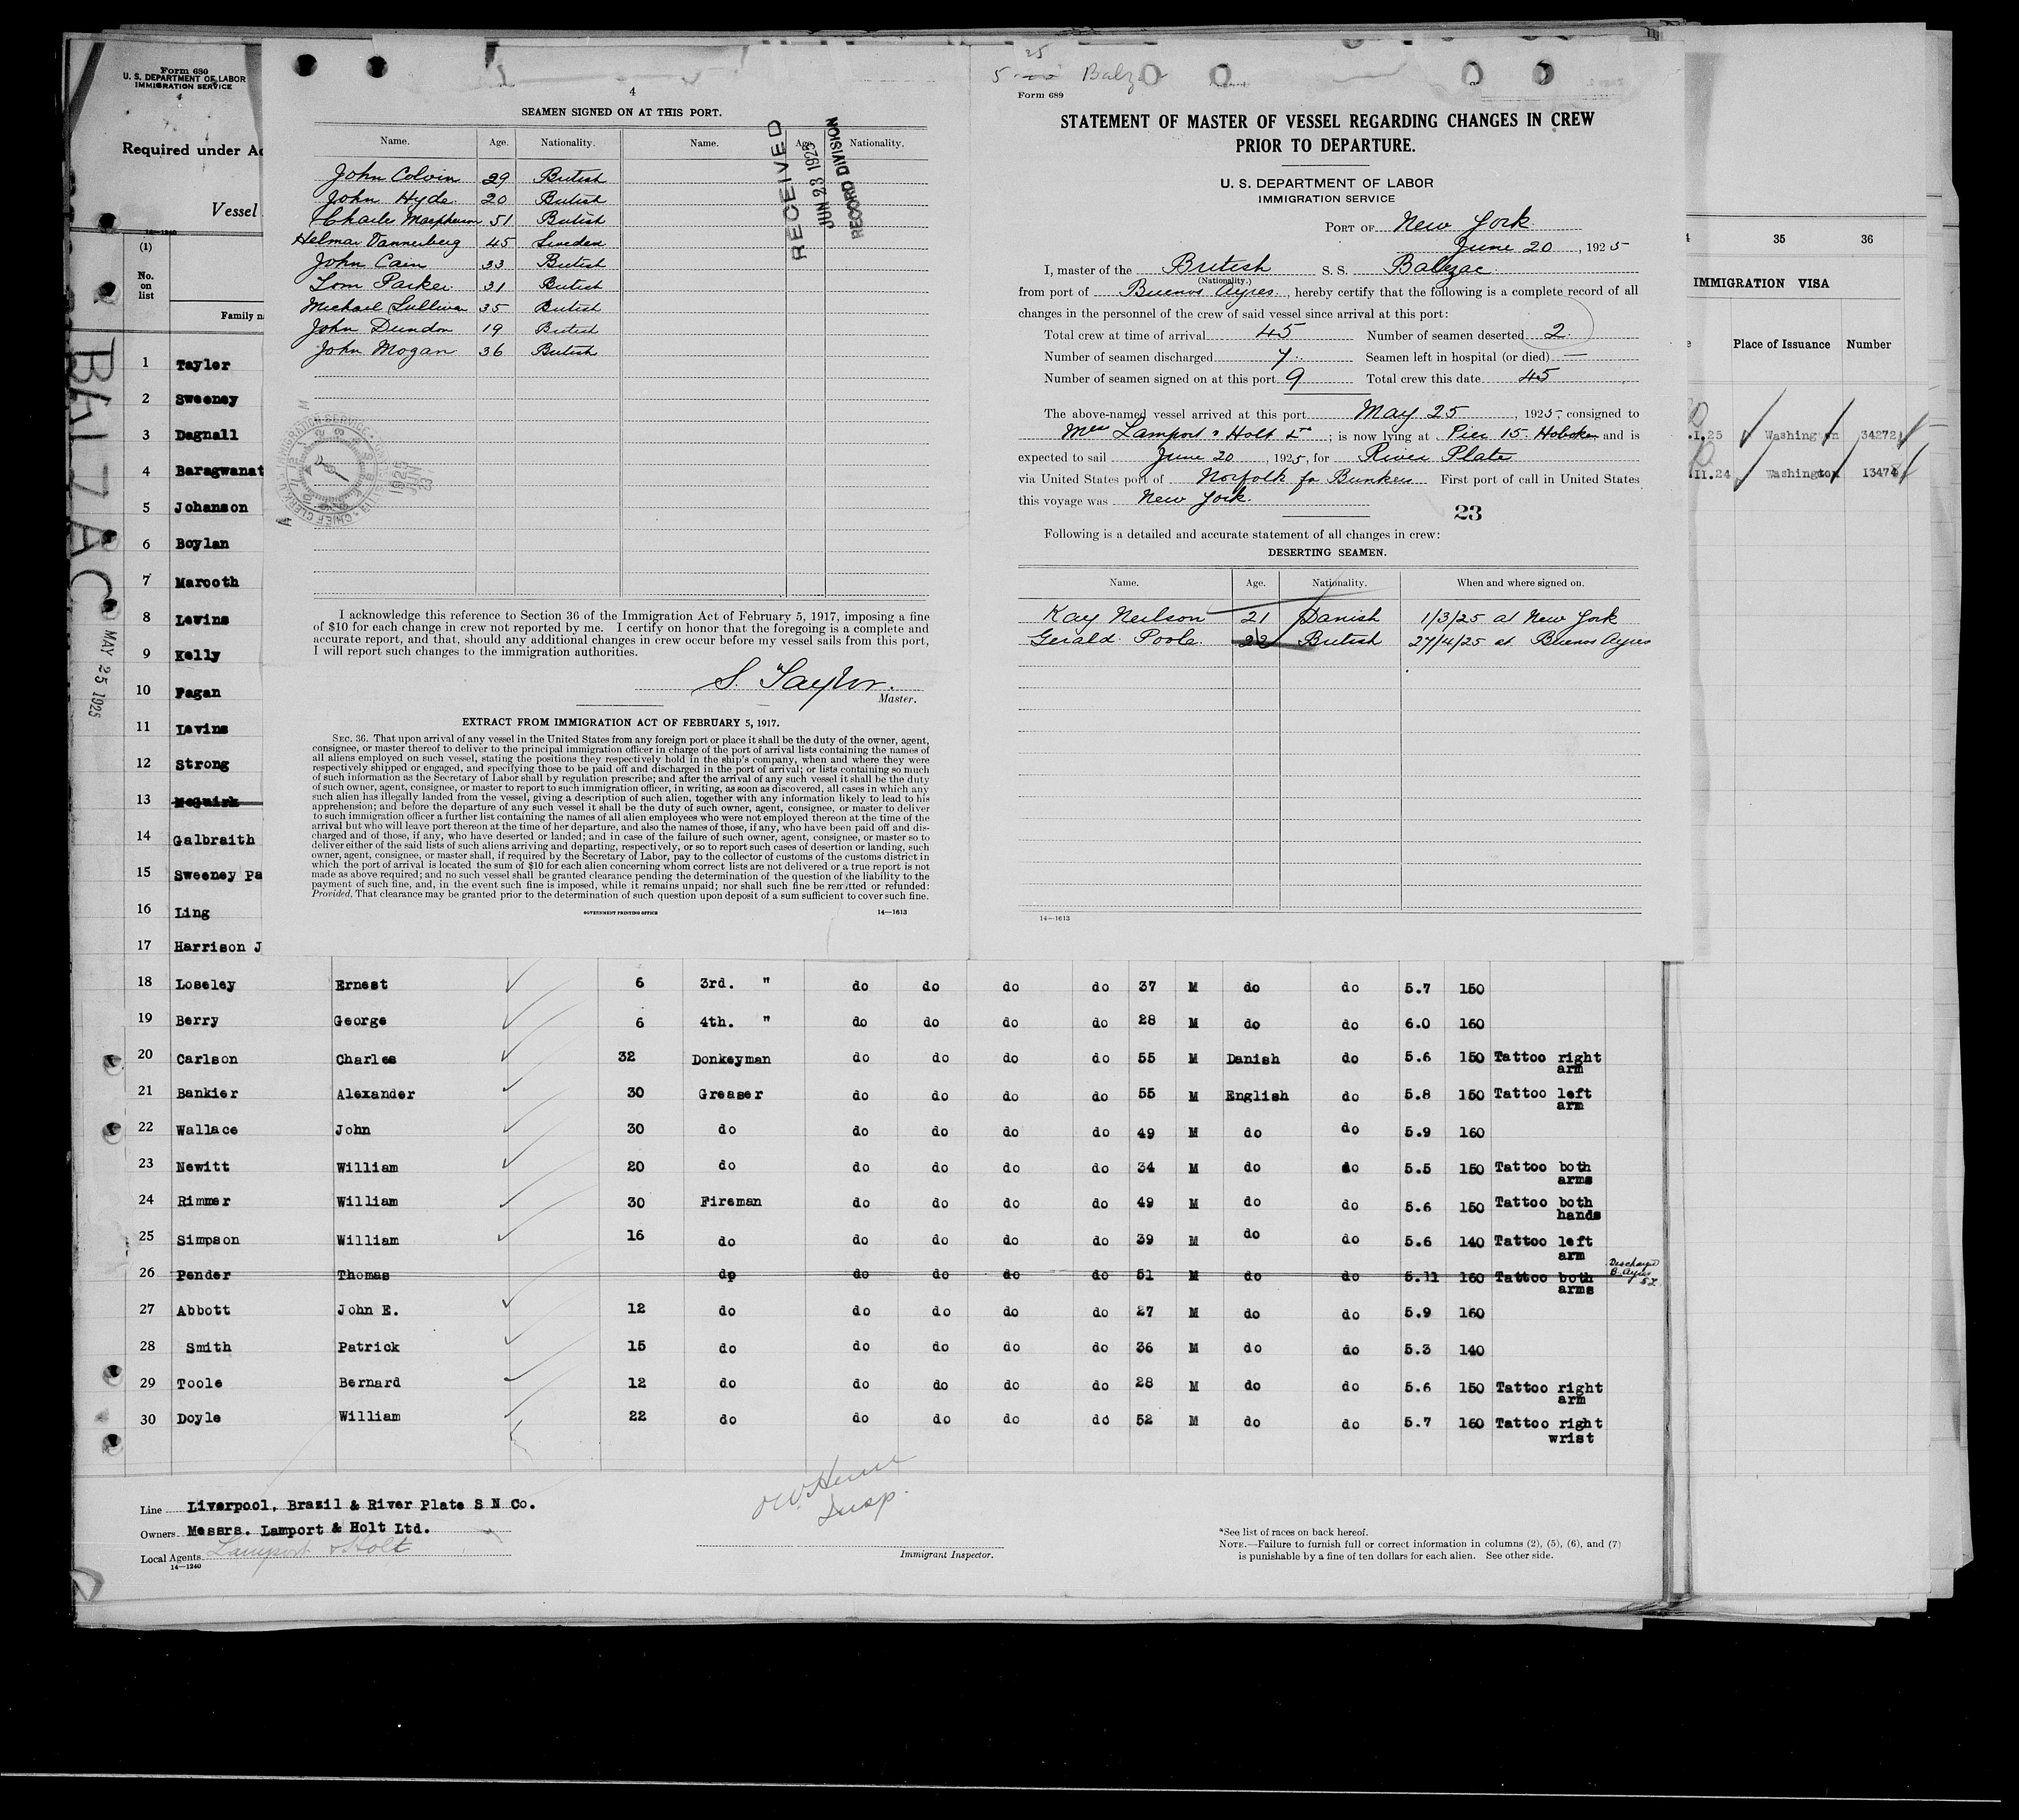 Form 680
U. S. DEPARTMENT OF LABOR
IMMIGRATION SERVICE
Required under Ac
Vessel
(1)
No.
on
list
Family n
BALZAC
MAY 25 1925
1 Tayler
2 Sweeney
3 Dagnall
4 Baragwanat
5 Johanson
6 Boylan
7 Marooth
8 Levins
9 Kelly
10 Fagan
11 Levins
12 Strong
13 McGuirk
14 Galbraith
15 Sweeney Pa
16 Ling
17 Harrison J
4
SEAMEN SIGNED ON AT THIS PORT.
Name. Age. Nationality. Name. Age. Nationality.
John Colvin 29 British
John Hyde 20 British
Charles Macpherson 51 British
Helmar Dannerberg 45 Sweden
John Cain 33 British
Tom Parker 31 British
Michael Sullivan 35 British
John Dundon 19 British
John Mogan 36 British
RECEIVED
JUN 23 1925
RECORD DIVISION
I acknowledge this reference to Section 36 of the Immigration Act of February 5, 1917, imposing a fine
of $10 for each change in crew not reported by me. I certify on honor that the foregoing is a complete and
accurate report, and that, should any additional changes in crew occur before my vessel sails from this port,
I will report such changes to the immigration authorities.
S. Taylor.
Master.
EXTRACT FROM IMMIGRATION ACT OF FEBRUARY 5, 1917.
SEC. 36. That upon arrival of any vessel in the United States from any foreign port or place it shall be the duty of the owner, agent,
consignee, or master thereof to deliver to the principal immigration officer in charge of the port of arrival lists containing the names of
all aliens employed on such vessel, stating the positions they respectively hold in the ship's company, when and where they were
respectively shipped or engaged, and specifying those to be paid off and discharged in the port of arrival; or lists containing so much
of such information as the Secretary of Labor shall by regulation prescribe; and after the arrival of any such vessel it shall be the duty
of such owner, agent, consignee, or master to report to such immigration officer, in writing, as soon as discovered, all cases in which any
such alien has illegally landed from the vessel, giving a description of such alien, together with any information likely to lead to his
apprehension; and before the departure of any such vessel it shall be the duty of such owner, agent, consignee, or master to deliver
to such immigration officer a further list containing the names of all alien employees who were not employed thereon at the time of the
arrival but who will leave port thereon at the time of her departure, and also the names of those, if any, who have been paid off and dis-
charged and of those, if any, who have deserted or landed; and in case of the failure of such owner, agent, consignee, or master so to
deliver either of the said lists of such aliens arriving and departing, respectively, or so to report such cases of desertion or landing, such
owner, agent, consignee, or master shall, if required by the Secretary of Labor, pay to the collector of customs of the customs district in
which the port of arrival is located the sum of $10 for each alien concerning whom correct lists are not delivered or a true report is not
made as above required; and no such vessel shall be granted clearance pending the determination of the question of the liability to the
payment of such fine, and, in the event such fine is imposed, while it remains unpaid; nor shall such fine be remitted or refunded:
Provided, That clearance may be granted prior to the determination of such question upon deposit of a sum sufficient to cover such fine.
GOVERNMENT PRINTING OFFICE 14—1613
25
5 Balz
Form 689
STATEMENT OF MASTER OF VESSEL REGARDING CHANGES IN CREW
PRIOR TO DEPARTURE.
U. S. DEPARTMENT OF LABOR
IMMIGRATION SERVICE
PORT OF New York
June 20, 1925
I, master of the British S. S. Balzac
(Nationality.)
from port of Buenos Ayres, hereby certify that the following is a complete record of all
changes in the personnel of the crew of said vessel since arrival at this port:
Total crew at time of arrival 45 Number of seamen deserted 2
Number of seamen discharged 7 Seamen left in hospital (or died) —
Number of seamen signed on at this port 9 Total crew this date 45
The above-named vessel arrived at this port May 25, 1925, consigned to
Mess Lamport & Holt Ld; is now lying at Pier 15 Hoboken and is
expected to sail June 20, 1925, for River Plate
via United States port of Norfolk for Bunkers First port of call in United States
this voyage was New York.
23
Following is a detailed and accurate statement of all changes in crew:
DESERTING SEAMEN.
Name. Age. Nationality. When and where signed on.
Kay Neilson 21 Danish 1/3/25 at New York
Gerald Poole 22 British 27/4/25 at Buenos Ayres
14—1613
35 36
IMMIGRATION VISA
Place of Issuance Number
.I.25 Washington 34272
.II.24 Washington 13474
18 Loseley Ernest 6 3rd. " do do do do 37 M do do 5.7 150
19 Berry George 6 4th. " do do do do 28 M do do 6.0 160
20 Carlson Charles 32 Donkeyman do do do do 55 M Danish do 5.6 150 Tattoo right
arm
21 Bankier Alexander 30 Greaser do do do do 55 M English do 5.8 150 Tattoo left
arm
22 Wallace John 30 do do do do do 49 M do do 5.9 160
23 Newitt William 20 do do do do do 34 M do do 5.5 150 Tattoo both
arms
24 Rimmer William 30 Fireman do do do do 49 M do do 5.6 150 Tattoo both
hands
25 Simpson William 16 do do do do do 39 M do do 5.6 140 Tattoo left
arm
26 Pender Thomas do do do do do 51 M do do 5.11 160 Tattoo both
arms
Discharged
B. Ayres
27 Abbott John E. 12 do do do do do 27 M do do 5.9 160
28 Smith Patrick 15 do do do do do 36 M do do 5.3 140
29 Toole Bernard 12 do do do do do 28 M do do 5.6 150 Tattoo right
arm
30 Doyle William 22 do do do do do 52 M do do 5.7 160 Tattoo right
wrist
Line Liverpool, Brazil & River Plate S N Co.
Owners Messrs. Lamport & Holt Ltd.
Local Agents Lamport & Holt
14—1240
Insp.
Immigrant Inspector.
*See list of races on back hereof.
NOTE.—Failure to furnish full or correct information in columns (2), (5), (6), and (7)
is punishable by a fine of ten dollars for each alien. See other side.